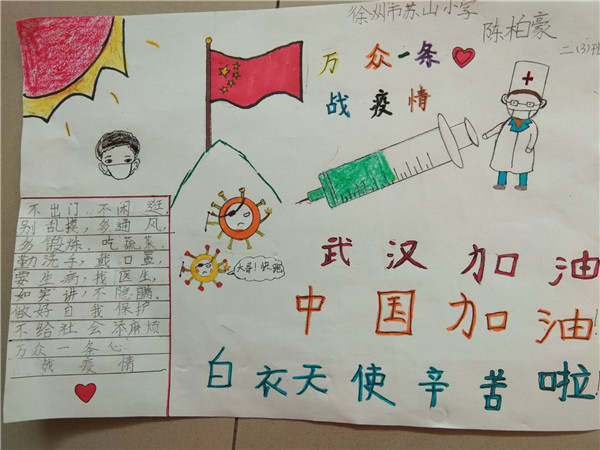 徐州市苏山小学
陈柏豪
二(3)班
万众一条
战疫情
大哥!快跑
不出门,不闲逛,
别乱摸,多通风,
多锻炼,吃蔬菜,
勤洗手,戴口罩,
要生病,找医生,
如实讲,不隐瞒。
做好自我保护
不给社会添麻烦
万众一条心
战疫情
武汉加油!
中国加油!
白衣天使辛苦啦!